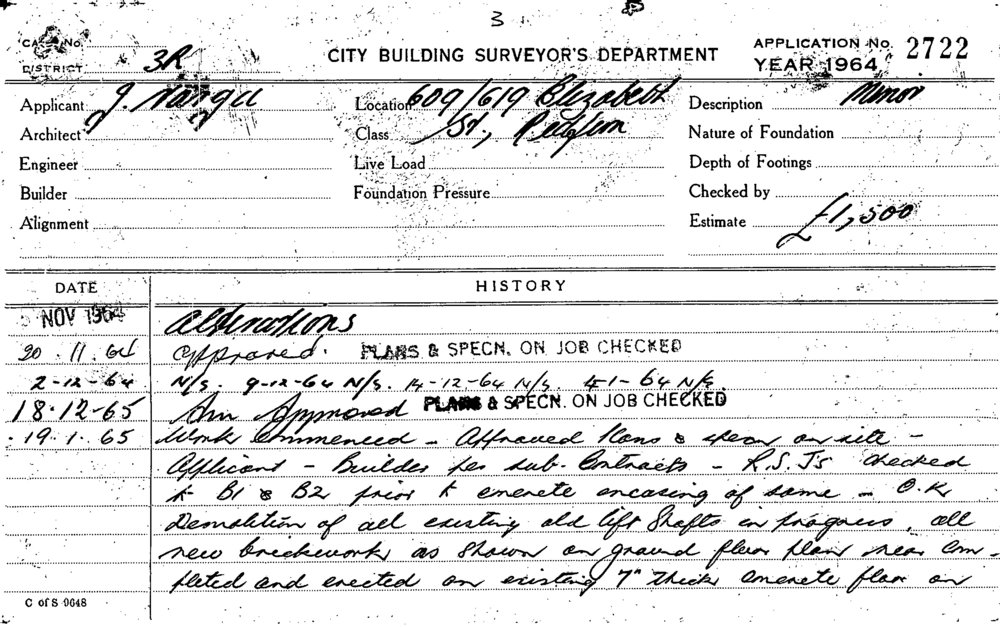 3
CARD No.
DISTRICT 3R
CITY BUILDING SURVEYOR'S DEPARTMENT
APPLICATION No. 2722
YEAR 1964
Applicant J. Varga
Location 609/619 Elizabeth
Description Minor
Architect
Class St, Redfern
Nature of Foundation
Engineer
Live Load
Depth of Footings
Builder
Foundation Pressure
Checked by
Alignment
Estimate £1,500
DATE HISTORY
NOV 1964 Alterations
20.11.64 Approved. PLANS & SPECN. ON JOB CHECKED
2-12-64 N/S. 9-12-64 N/S. 14-12-64 N/S. 4-1-64 N/S.
18.12-65 Approved PLANS & SPECN. ON JOB CHECKED
19.1.65 Work commenced - Approved Plans & specn on site -
Applicant - Builder per sub-Contracts - R.S.J's checked
to B1 & B2 prior to concrete encasing of same - O.K.
Demolition of all existing old lift shafts in progress, all
new brickwork as shown on ground floor plan near com-
pleted and erected on existing 7" thick concrete floor on
C of S 9648